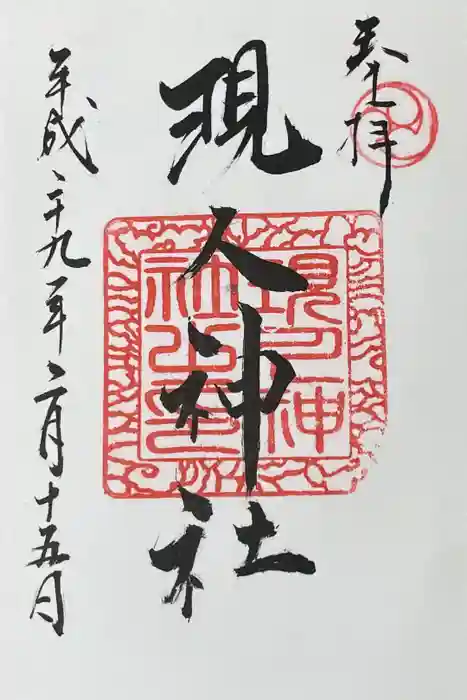 奉拝
現人神社
平成二十九年二月十五日
現人神
社之印